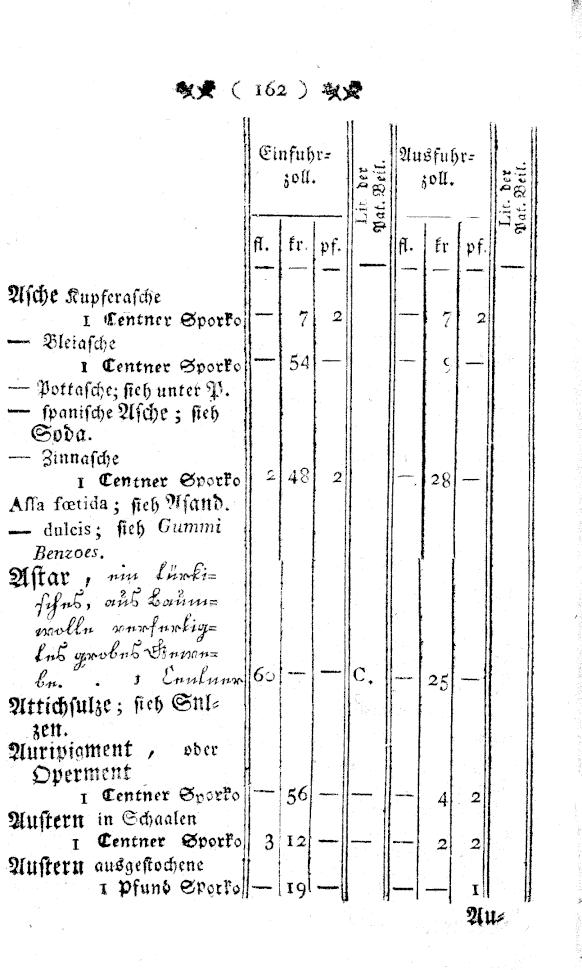 ( 162 )
Einfuhr= zoll. Lit. der Pat. Beil. Ausfuhr= zoll. Lit. der Pat. Beil.
fl. kr. pf. fl. kr pf.
— — — — — — — —
Asche Kupferasche
1 Centner Sporko — 7 2 — 7 2
— Bleiasche
1 Centner Sporko — 54 — — 9 —
— Pottasche; sieh unter P.
— spanische Asche; sieh
Soda.
— Zinnasche
1 Centner Sporko 2 48 2 — 28 —
Assa fœtida; sieh Asand.
— dulcis; sieh Gummi
Benzoes.
Astar, ein türki=
sches, aus Baum=
wolle verfertig=
tes grobes Gewe=
be. . 1 Centner 60 — — C. — 25 —
Attichsulze; sieh Sul=
zen.
Auripigment, oder
Operment
1 Centner Sporko — 56 — — — 4 2
Austern in Schaalen
1 Centner Sporko 3 12 — — — 2 2
Austern ausgestochene
1 Pfund Sporko — 19 — — — 1
Au=